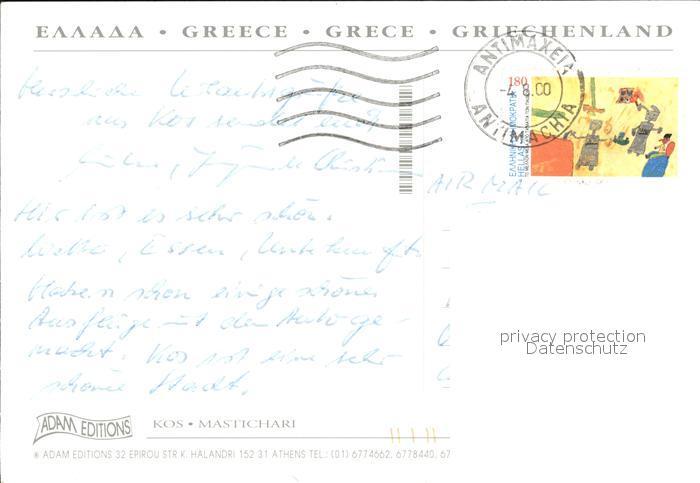 ΕΛΛΑΔΑ • GREECE • GRECE • GRIECHENLAND
ΑΝΤΙΜΑΧΕΙΑ
-4.8.00
ANTIMACHIA
180
HELLAS
AIR MAIL
Herzliche Urlaubsgrüße
aus Kos sendet euch
Hier ist es sehr schön.
Wetter, Essen, Unterkunft.
Haben schon einige schöne
Ausflüge mit dem Auto ge-
macht. Kos ist eine sehr
schöne Stadt.
privacy protection
Datenschutz
ADAM EDITIONS
KOS • MASTICHARI
® ADAM EDITIONS 32 EPIROU STR K. HALANDRI 152 31 ATHENS TEL.: (01) 6774662, 6778440, 67